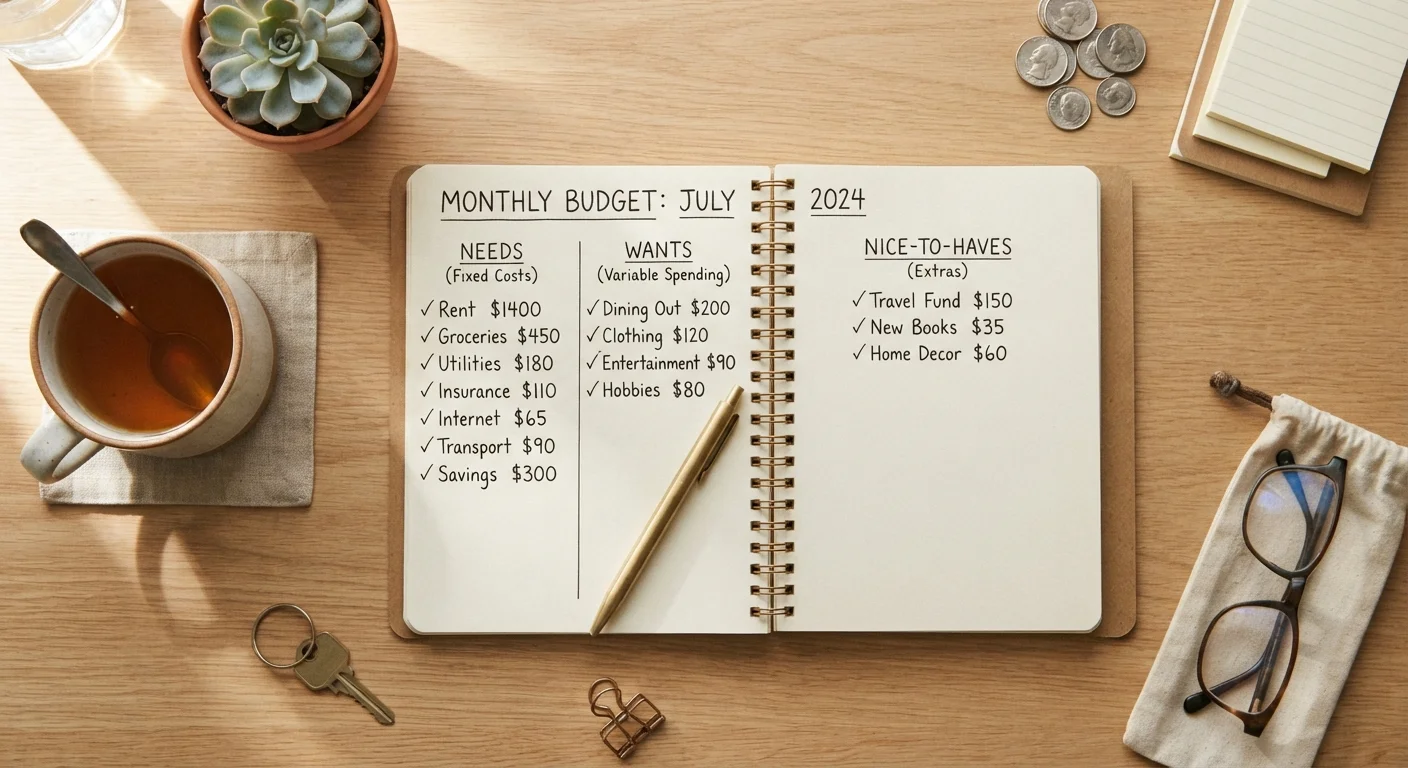 MONTHLY BUDGET: JULY 2024
NEEDS
(Fixed Costs)
✓ Rent $1400
✓ Groceries $450
✓ Utilities $180
✓ Insurance $110
✓ Internet $65
✓ Transport $90
✓ Savings $300
WANTS
(Variable Spending)
✓ Dining Out $200
✓ Clothing $120
✓ Entertainment $90
✓ Hobbies $80
NICE-TO-HAVES
(Extras)
✓ Travel Fund $150
✓ New Books $35
✓ Home Decor $60